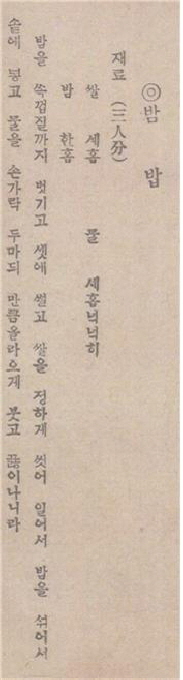 ◎밤 밥
재료 (三人分)
쌀 세홉 물 세홉넉넉히
밤 한홉
밤을 속껍질까지 벗기고 셋에 썰고 쌀을 정하게 씻어 일어서 밤을 섞어서
솥에 넣고 물을 손가락 두마듸 만큼올라오게 붓고 끓이나니라